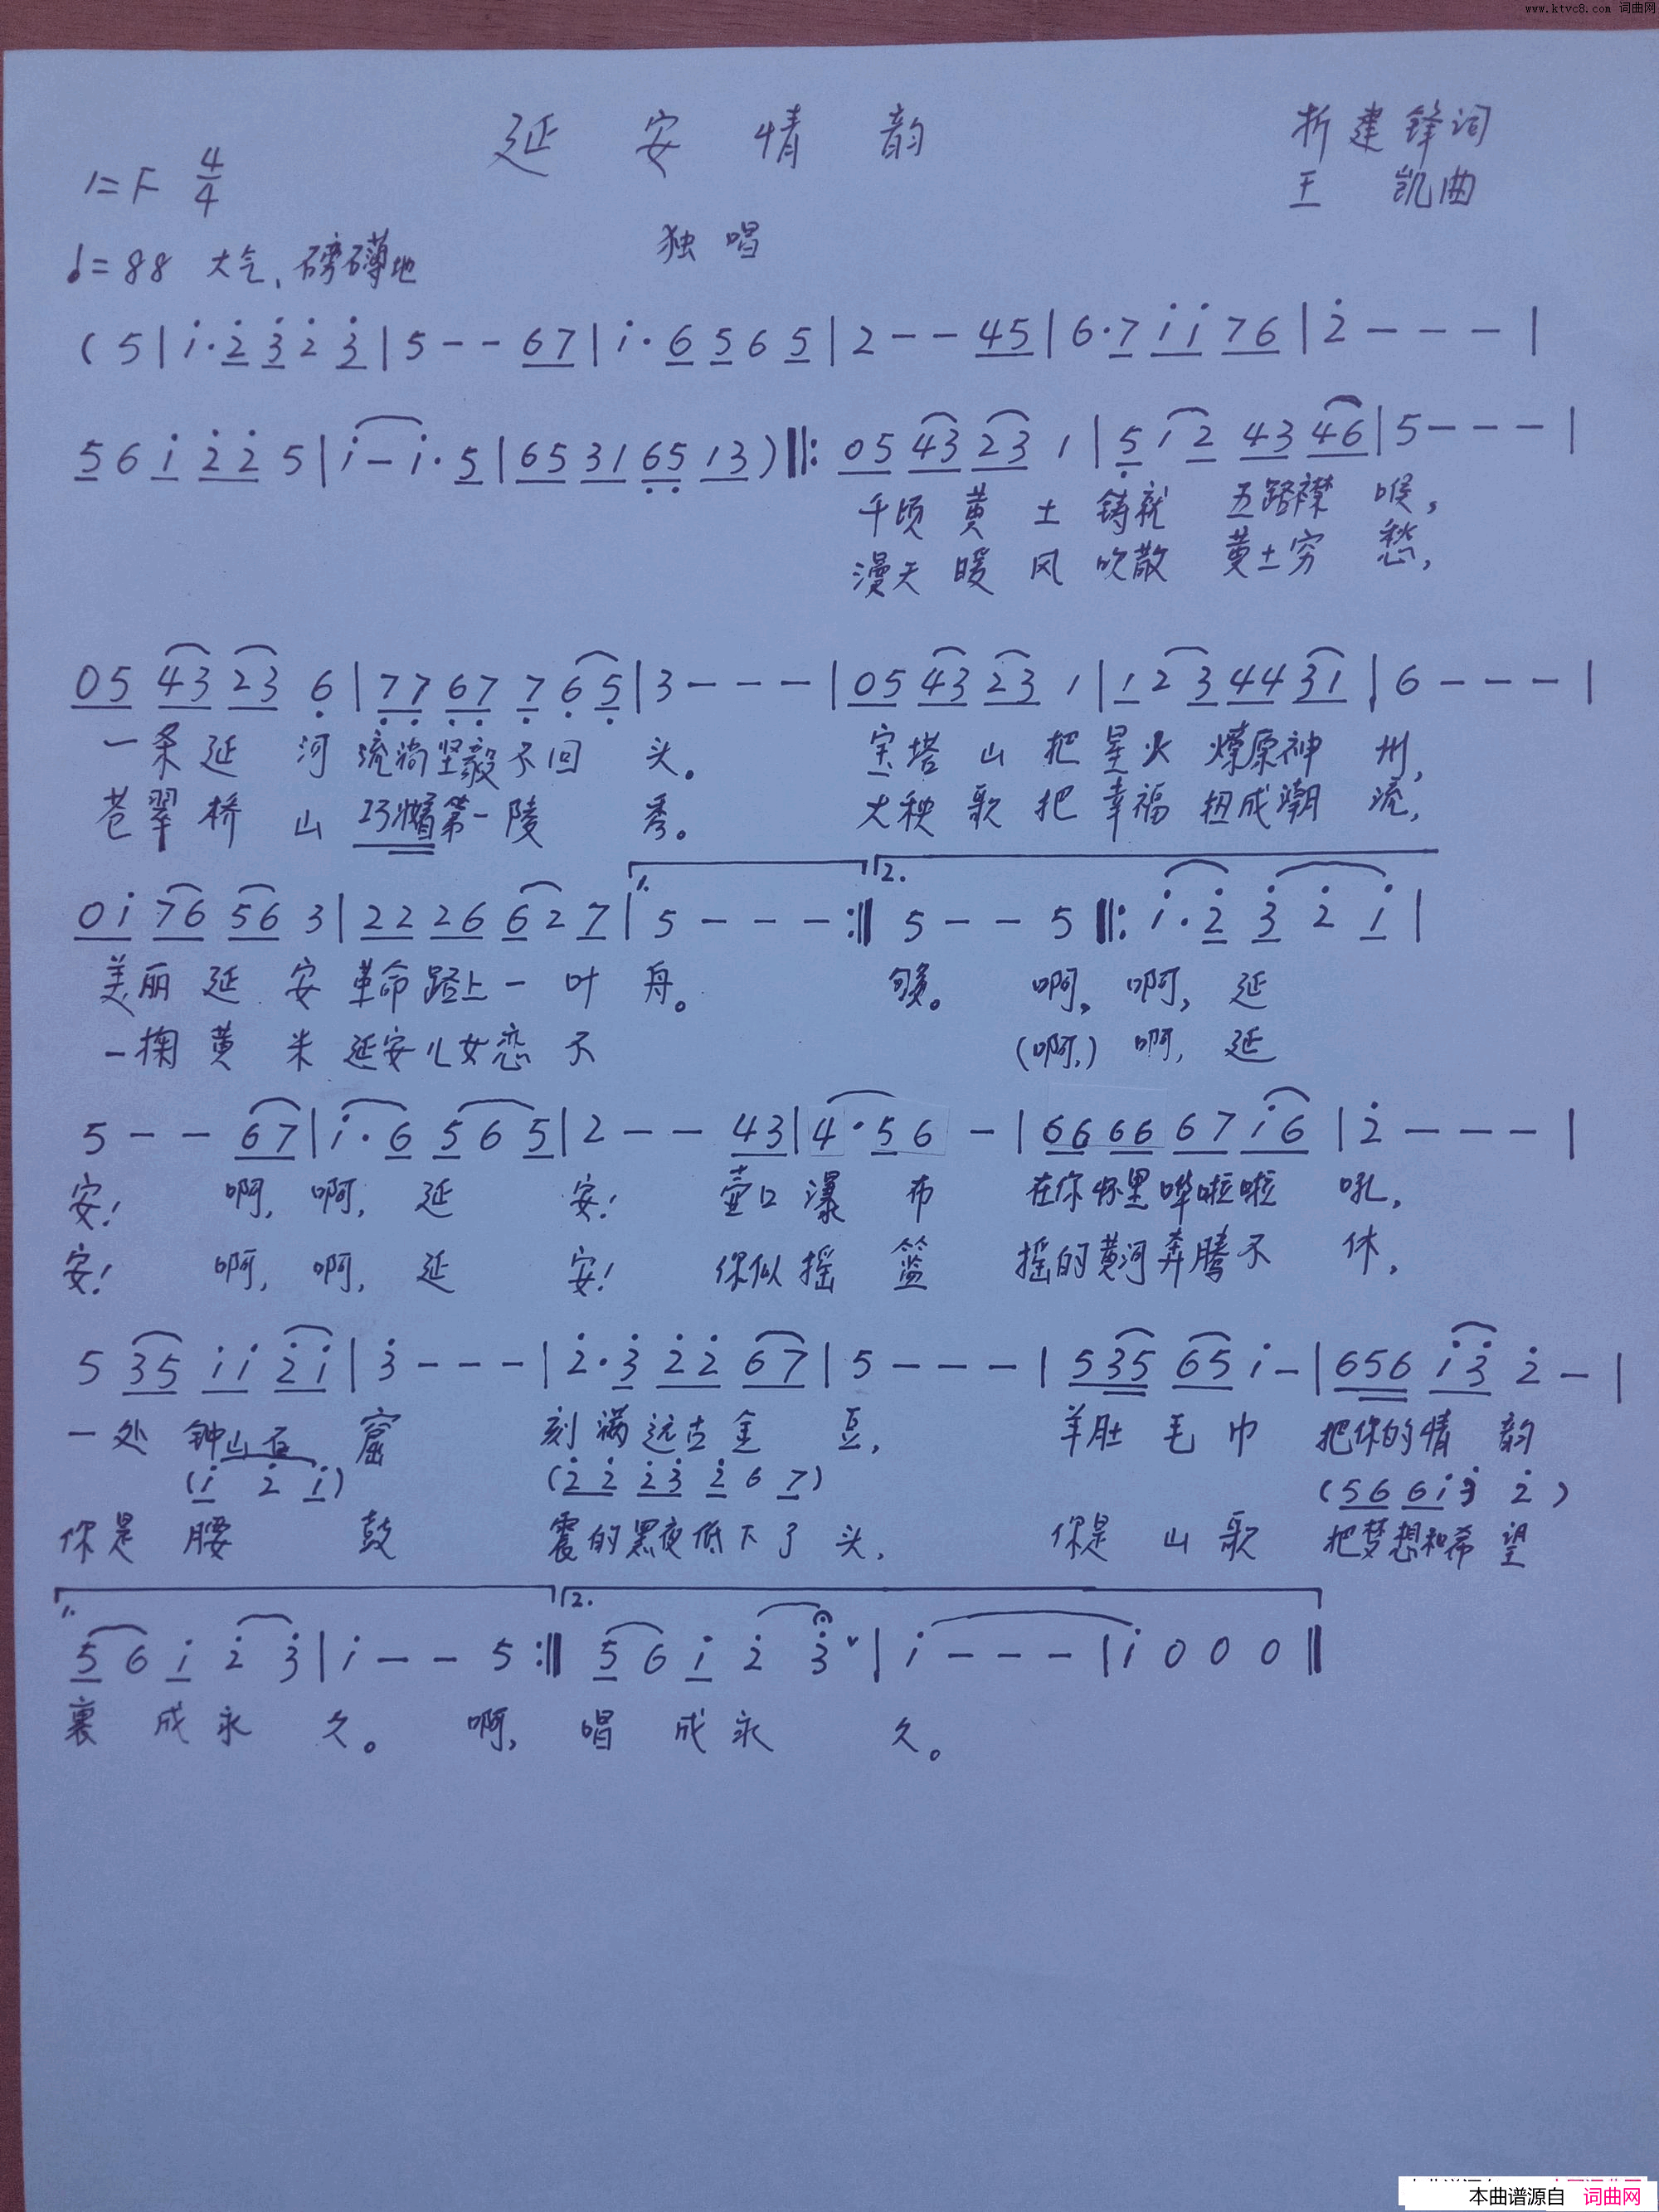 www.ktvc8.com 词曲网
延安情韵
折建锋词
1=F 4/4
王 凯曲
独唱
♩=88 大气、磅礴地
(5|i·2̇ 3̇ 2̇ 3̇|5--67|i·6 5 6 5|2--45|6·7 i i 76|2̇---|
5 6 i 2̇ 2̇ 5|i-i·5|65 31 6̣5̣ 13)‖: 05 43 23 1|5̣ 1 2 43 46|5---|
千顷黄土铸就五路襟喉,
漫天暖风吹散黄土穷愁,
05 43 23 6̣|7̣7̣ 6̣7̣ 7̣ 6̣ 5̣|3---|05 43 23 1|1 2 3 44 31|6---|
一条延河流淌坚毅不回头。 宝塔山把星火燎原神州,
苍翠桥山 第一陵秀。 大秧歌把幸福扭成潮流,
1. 2.
0i 76 56 3|22 26 6 2 7|5---:‖ 5--5‖: i·2̇ 3̇ 2̇ i|
美丽延安革命路上一叶舟。 够。 啊,啊,延
一掬黄米延安儿女恋不 (啊,)啊,延
5--67|i·6 5 6 5|2--43|4·5 6-|66 66 67 i6|2̇---|
安! 啊,啊,延安! 壶口瀑布 在你怀里哗啦啦吼,
安! 啊,啊,延安! 你似摇篮 摇的黄河奔腾不休,
5 35 ii 2̇i|3̇---|2̇·3̇ 2̇2̇ 67|5---|535 65 i-|656 i3̇ 2̇-|
一处钟山石窟 刻满远古金豆, 羊肚毛巾 把你的情韵
(i 2̇ i) (2̇2̇ 2̇3̇ 2̇ 6 7) (56 6i 3̇ 2̇)
你是腰鼓 震的黑夜低下了头, 你是山歌 把梦想和希望
1. 2.
5 6 i 2̇ 3̇|i--5:‖ 5 6 i 2̇ 3̇ˇ|i---|i000‖
裹成永久。 啊, 唱成永久。
本曲谱源自 词曲网